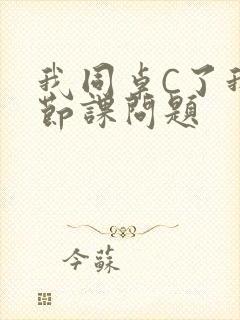 我同桌C了我
节課問題
今蘇